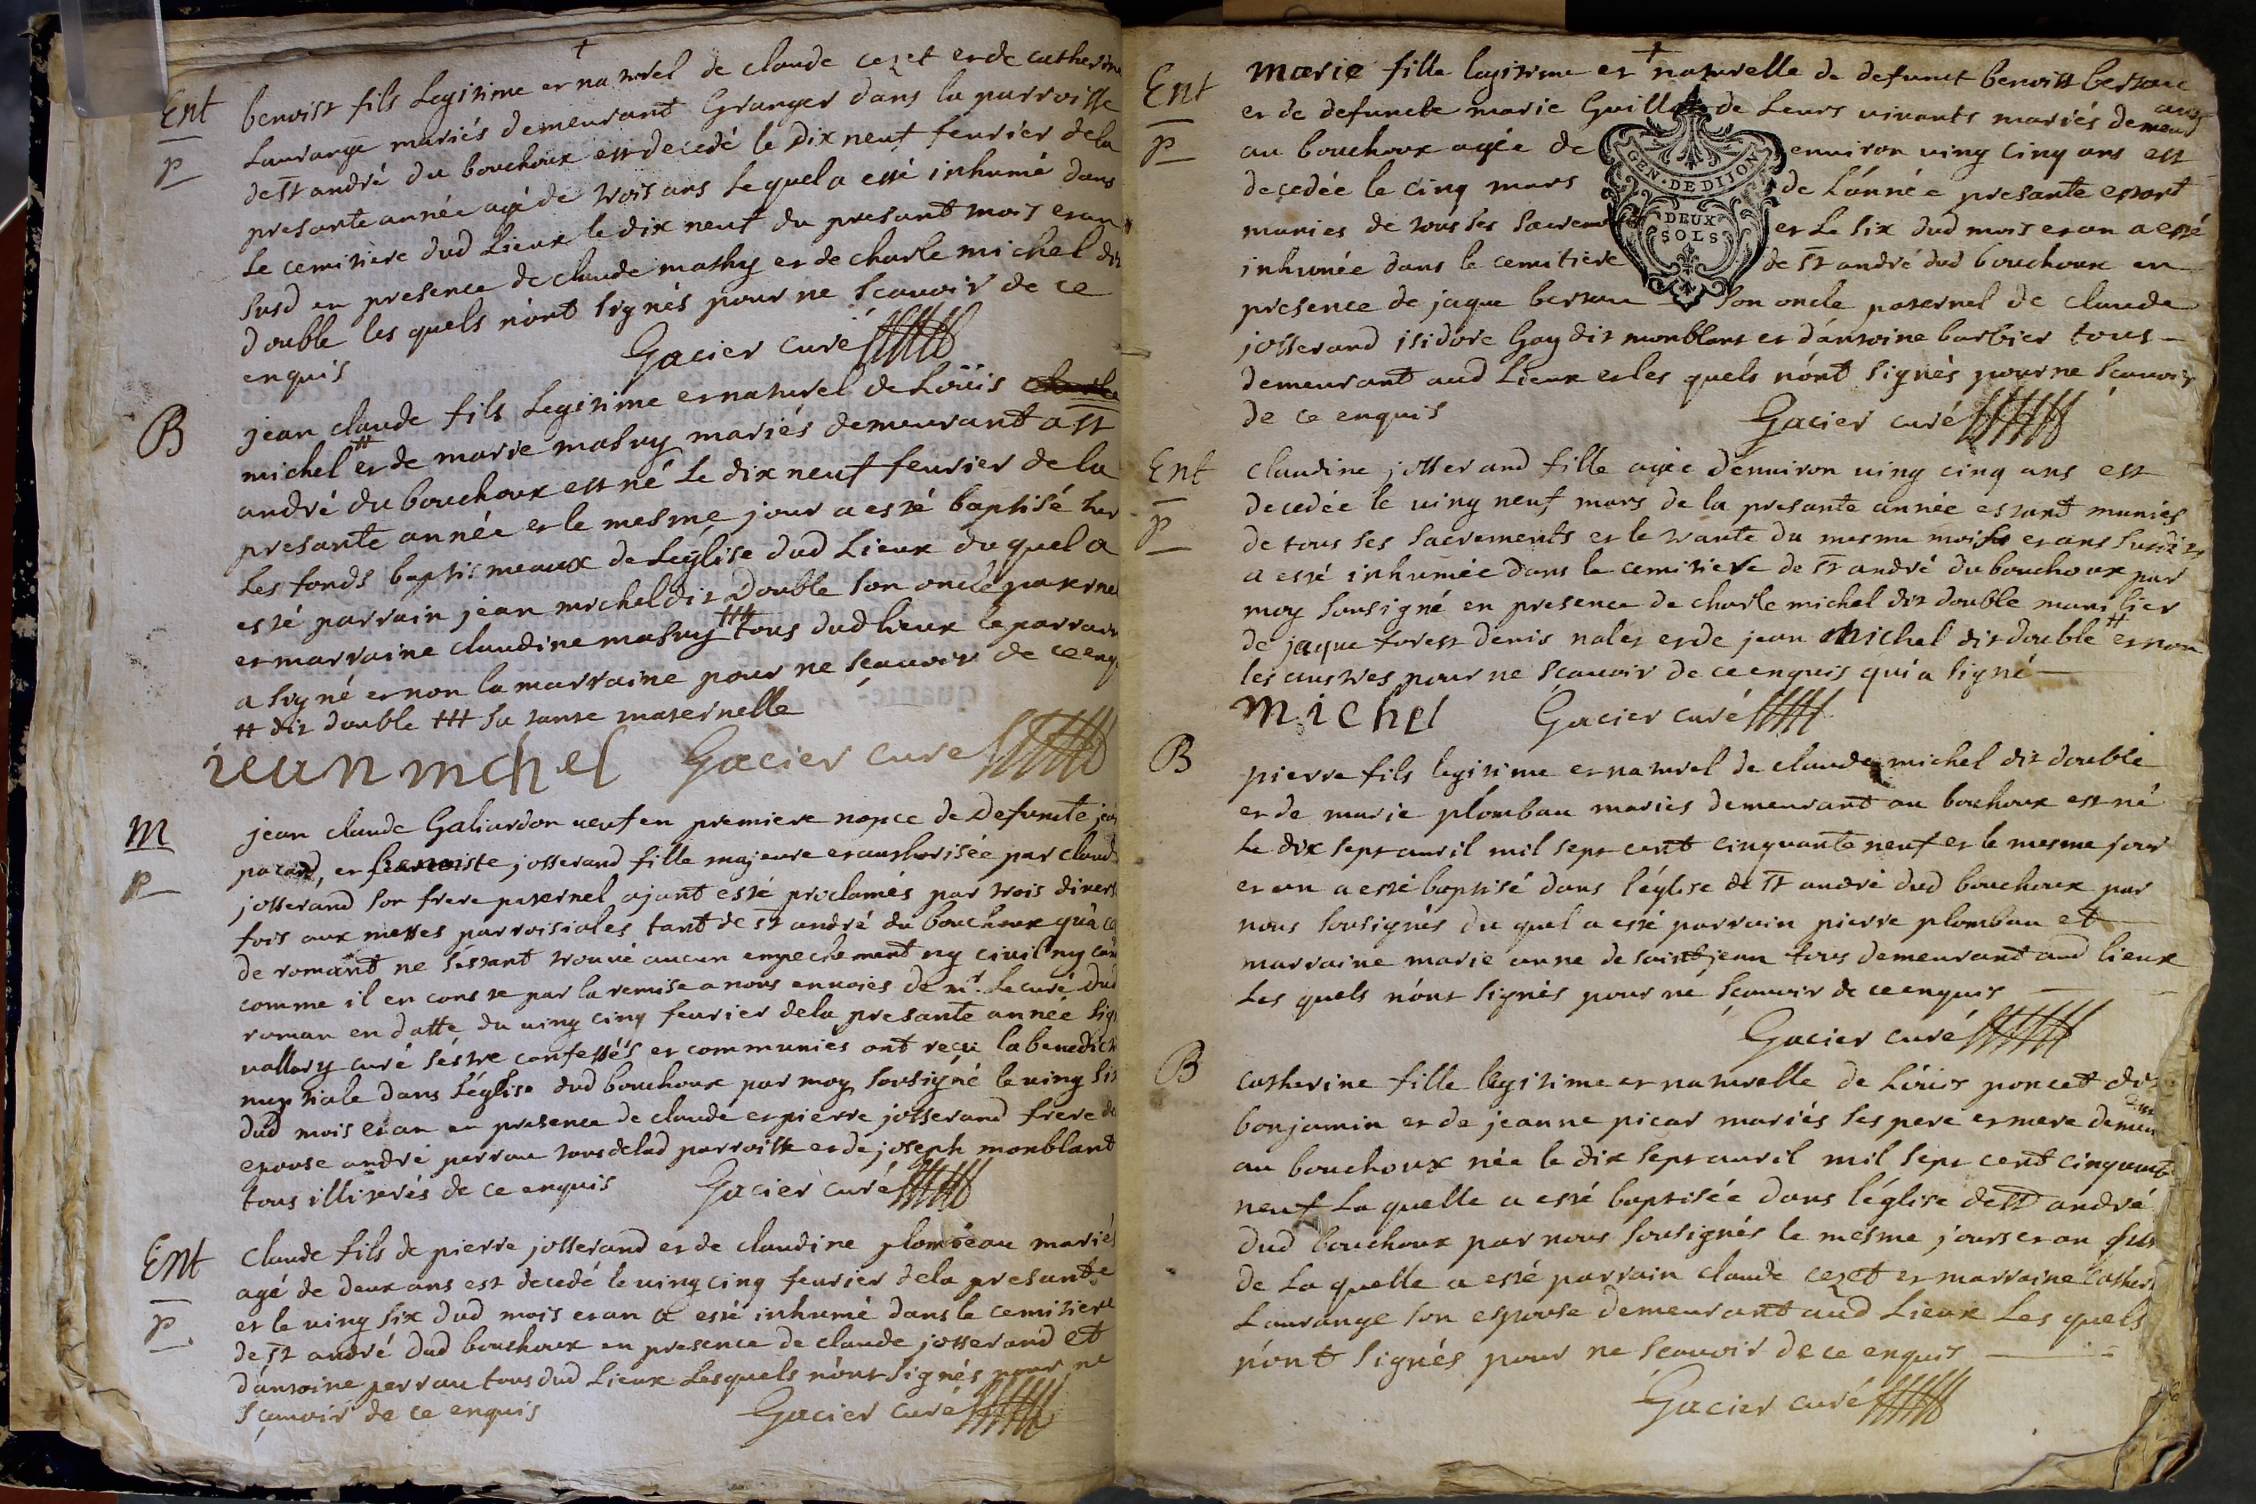 Ent
p
benoist fils Legitime et naturel de claude cezet et de catherine
Laurange mariés demeurant Granger dans la parroisse
de st andré du bouchoux est decedé le Dix neuf feurier de la
presante année agé de trois ans Lequel a esté inhumé dans
Le cemitiere dud Lieux le dix neuf du presant mois et an
susd en presence de claude mathy et de charle michel dit
double les quels n'ont signés pour ne Scauoir de ce
enquis Gacier curé
B
jean claude fils Legitime et naturel de Loüis
michel # et de marie mathy mariés demeurant a st
andré du bouchoux est né Le dix neuf feurier de la
presante année et le mesme jour a esté baptisé sur
Les fonds baptismeaux de Leglise dud Lieux du quel a
esté parrain jean michel dit Double son oncle paternel
et marraine claudine mathy ## tous dud lieux le parrain
a signé et non la marraine pour ne sçauoir de ce enq
# dit double ## sa tante maternelle
jean michel Gacier curé
M
p
jean claude Galiardon ueuf en premiere nopce de Defuncte jea
pacard, et josserand fille majeure et autherisée par claude
josserand son frere paternel ajant esté proclamés par trois diverse
fois aux messes parroisiales tant de st andré du bouchoux qu'a ce
de romant ne s'estant trouué aucun empechement ny civil ny can
comme il en conste par la remise a nous enuoiés de mr. Le curé dud
roman en datte du uing cinq feurier de la presante année sig
uallory curé s'estre confessés et communiés ont reçu la benedict
nuptiale dans L'église dud bouchoux par moy sousigné le uing six
dud mois et an en presence de claude et pierre josserand frere de
epouse andré perrau tous de lad parroisse et de joseph monblant
tous illitérés de ce enquis Gacier curé
Ent
p.
Claude fils de pierre josserand et de claudine plombeau mariés
agé de deux ans est decedé le uing cinq feurier de la presante
et le uing six dud mois et an a esté inhumé dans le cemitiere
de st andré dud bouchoux en presence de claude josserand et
d'antoine perrau tous dud Lieux Lesquels n'ont signés pour ne
sçauoir de ce enquis Gacier curé
Ent
p
marie fille legitime et naturelle de defunct benoist bertau
et de defuncte marie Guillot de Leurs uiuants mariés demeurant
au bouchoux agée de enuiron uing cinq ans est
decedée le cinq mars de L'année presante estant
munies de tous ses sacrem et Le six dud mois et an a esté
inhumée dans le cemitiere de st andré dud bouchoux en
presence de jaque bertau son oncle paternel de claude
josserand isidore Gay dit monblant et d'antoine barbier tous
demeurant aud Lieux et les quels n'ont signés pour ne Scauoir
de ce enquis Gacier curé
GEN·DE DIJON
DEUX
SOLS
Ent
p
claudine josserand fille agée d'enuiron uing cinq ans est
decedée le uing neuf mars de la presante année estant muniés
de tous ses sacrements et le trante du mesme mois et ans susdits
a esté inhumée dans le cemitiere de st andré du bouchoux par
moy sousigné en presence de charle michel dit double manilier
de jaque forest denis nalet et de jean michel dit double # et non
les austres pour ne sçauoir de ce enquis # qui a signé
michel Gacier curé
B
pierre fils legitime et naturel de claude michel dit double
et de marie plombau mariés demeurant au bouhoux est né
Le dix sept auril mil sept cent cinquante neuf et le mesme jour
et an a esté baptisé dans l'église de st andré dud bouchoux par
nous sousignés du quel a esté parrain pierre plombau et
marraine marie anne de saint jean tous demeurant aud lieux
Les quels n'ont signés pour ne sçauoir de ce enquis
Gacier curé
B
catherine fille legitime et naturelle de Loüis poncet dit
bonjamin et de jeanne picar mariés ses pere et mere demeu
au bouchoux née le dix sept auril mil sept cent cinquante
neuf La quelle a esté baptisée dans l'église de st andré
dud bouchoux par nous sousignés le mesme jours et an
de La quelle a esté parrain claude cezet et marraine Cather
Laurange son espouse demeurant aud Lieux Les quels
n'ont signés pour ne sçauoir de ce enquis
Gacier curé